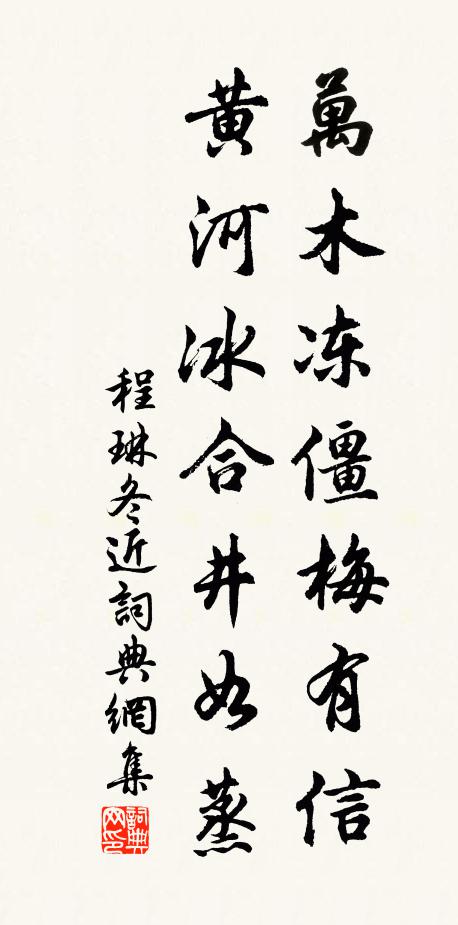 萬木冻僵梅有信
黄河冰合井如蒸
程琳冬近詞典網集
詞典网印